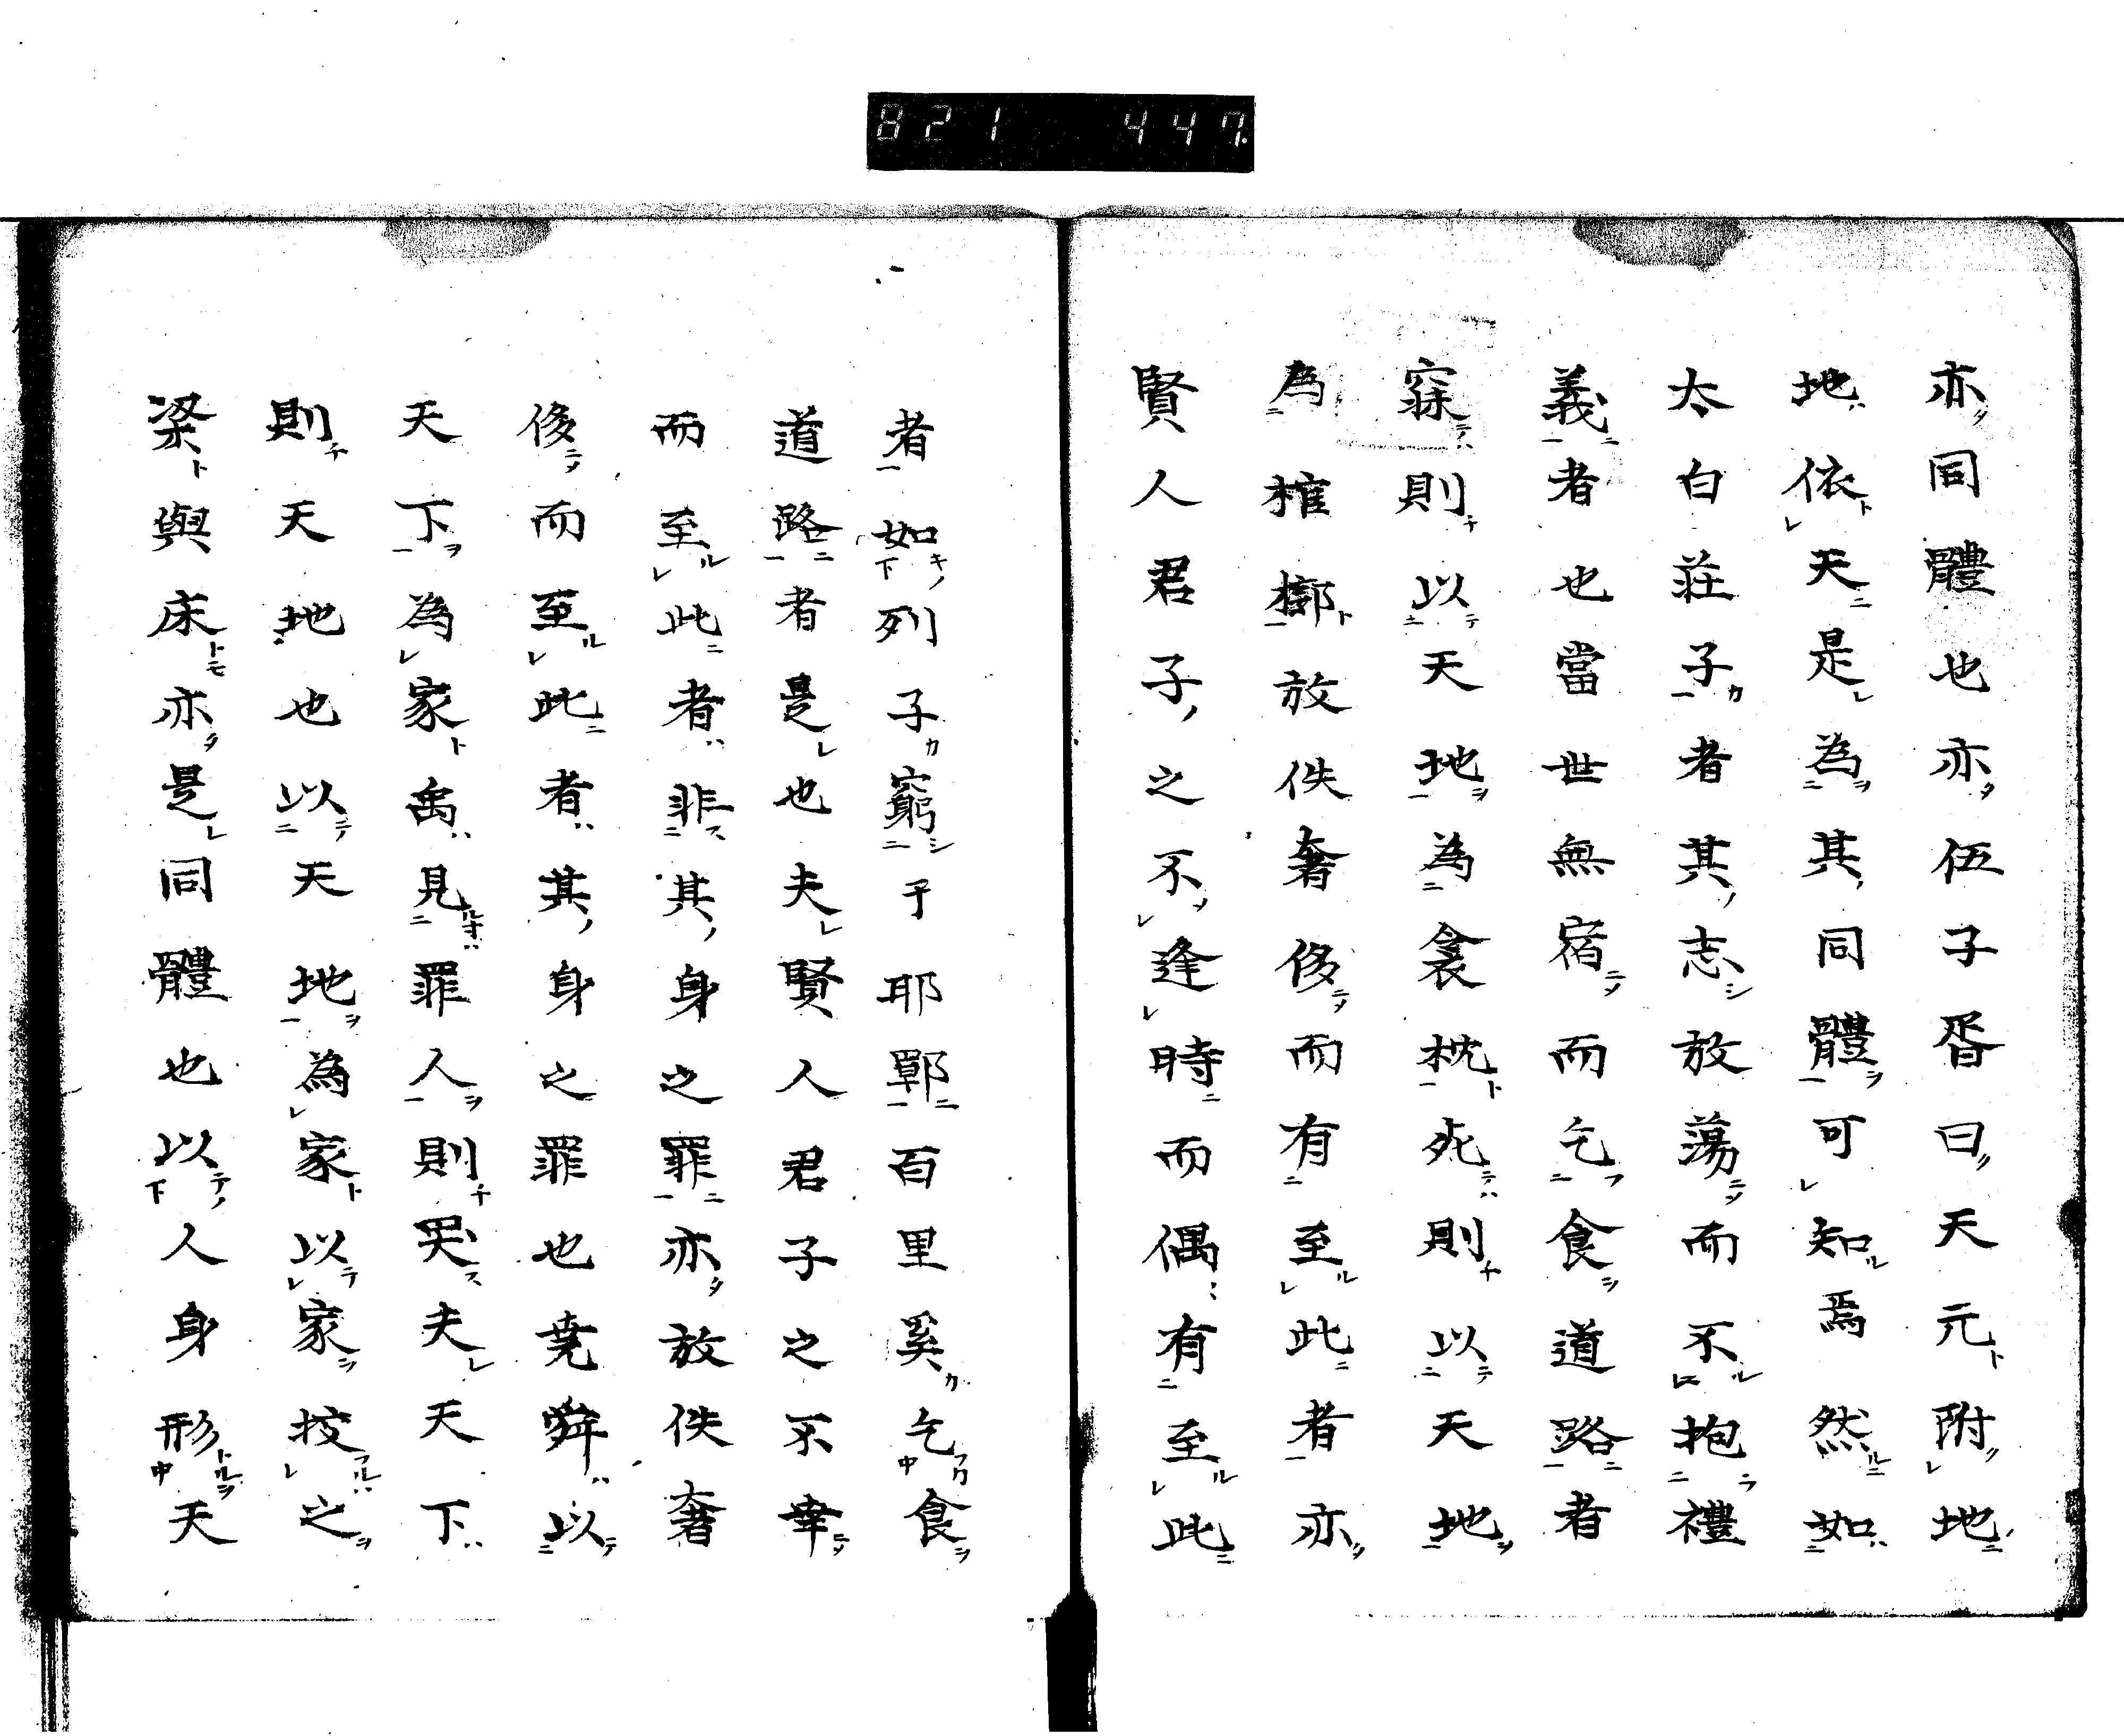 821 447.
亦同體也亦伍子胥曰天元附地
地依天是為其同體可知焉然如
太白荘子者其志放蕩而不抱禮
義者也當世無宿而乞食道路者
寐則以天地為衾枕死則以天地
為棺槨放佚奢侈而有至此者亦
賢人君子之不逢時而偶有至此
者如列子窮于耶鄲百里奚乞食
道路者是也夫賢人君子之不幸
而至此者非其身之罪亦放佚奢
侈而至此者其身之罪也尭舜以
天下為家禹見罪人則哭夫天下
則天地也以天地為家以家按之
梁與床亦是同體也以人身形天